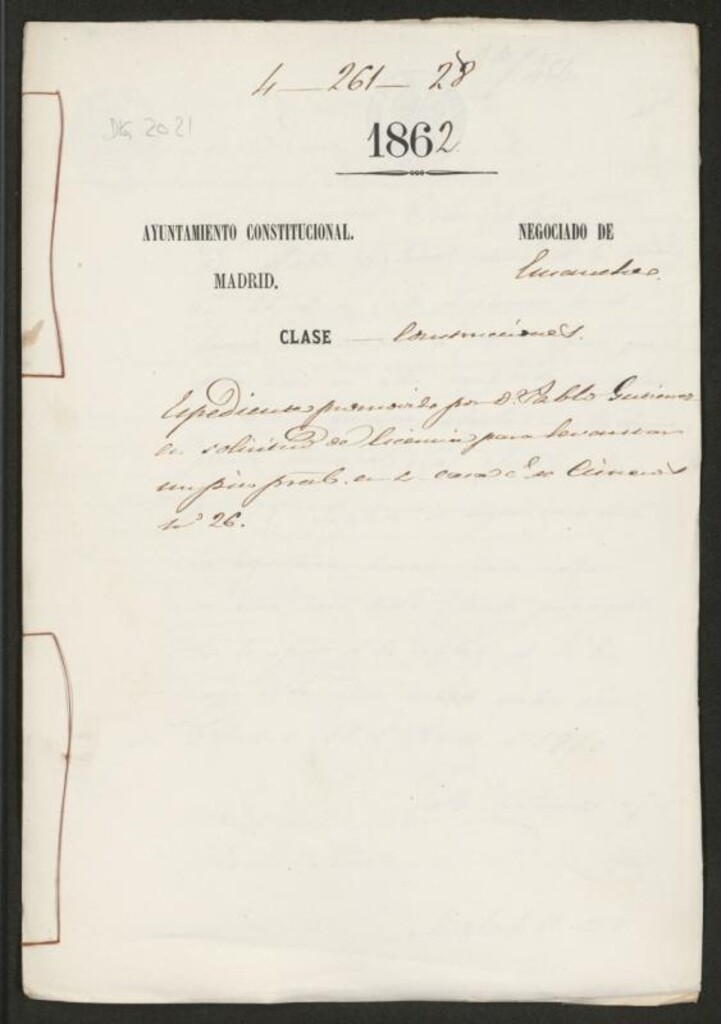 4 — 261 — 28
Dg 2021
1862
AYUNTAMIENTO CONSTITUCIONAL.
NEGOCIADO DE
MADRID.
Ensanche.
CLASE — Construcciones.
Espediente promovido por D. Pablo Gutierrez
en solicitud de licencia para levantar
un piso pral. en la casa C. de Cisneros
nº 26.